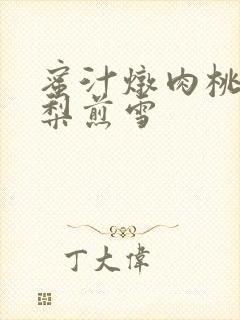 蜜汁燉肉桃
梨煎雪
丁大偉